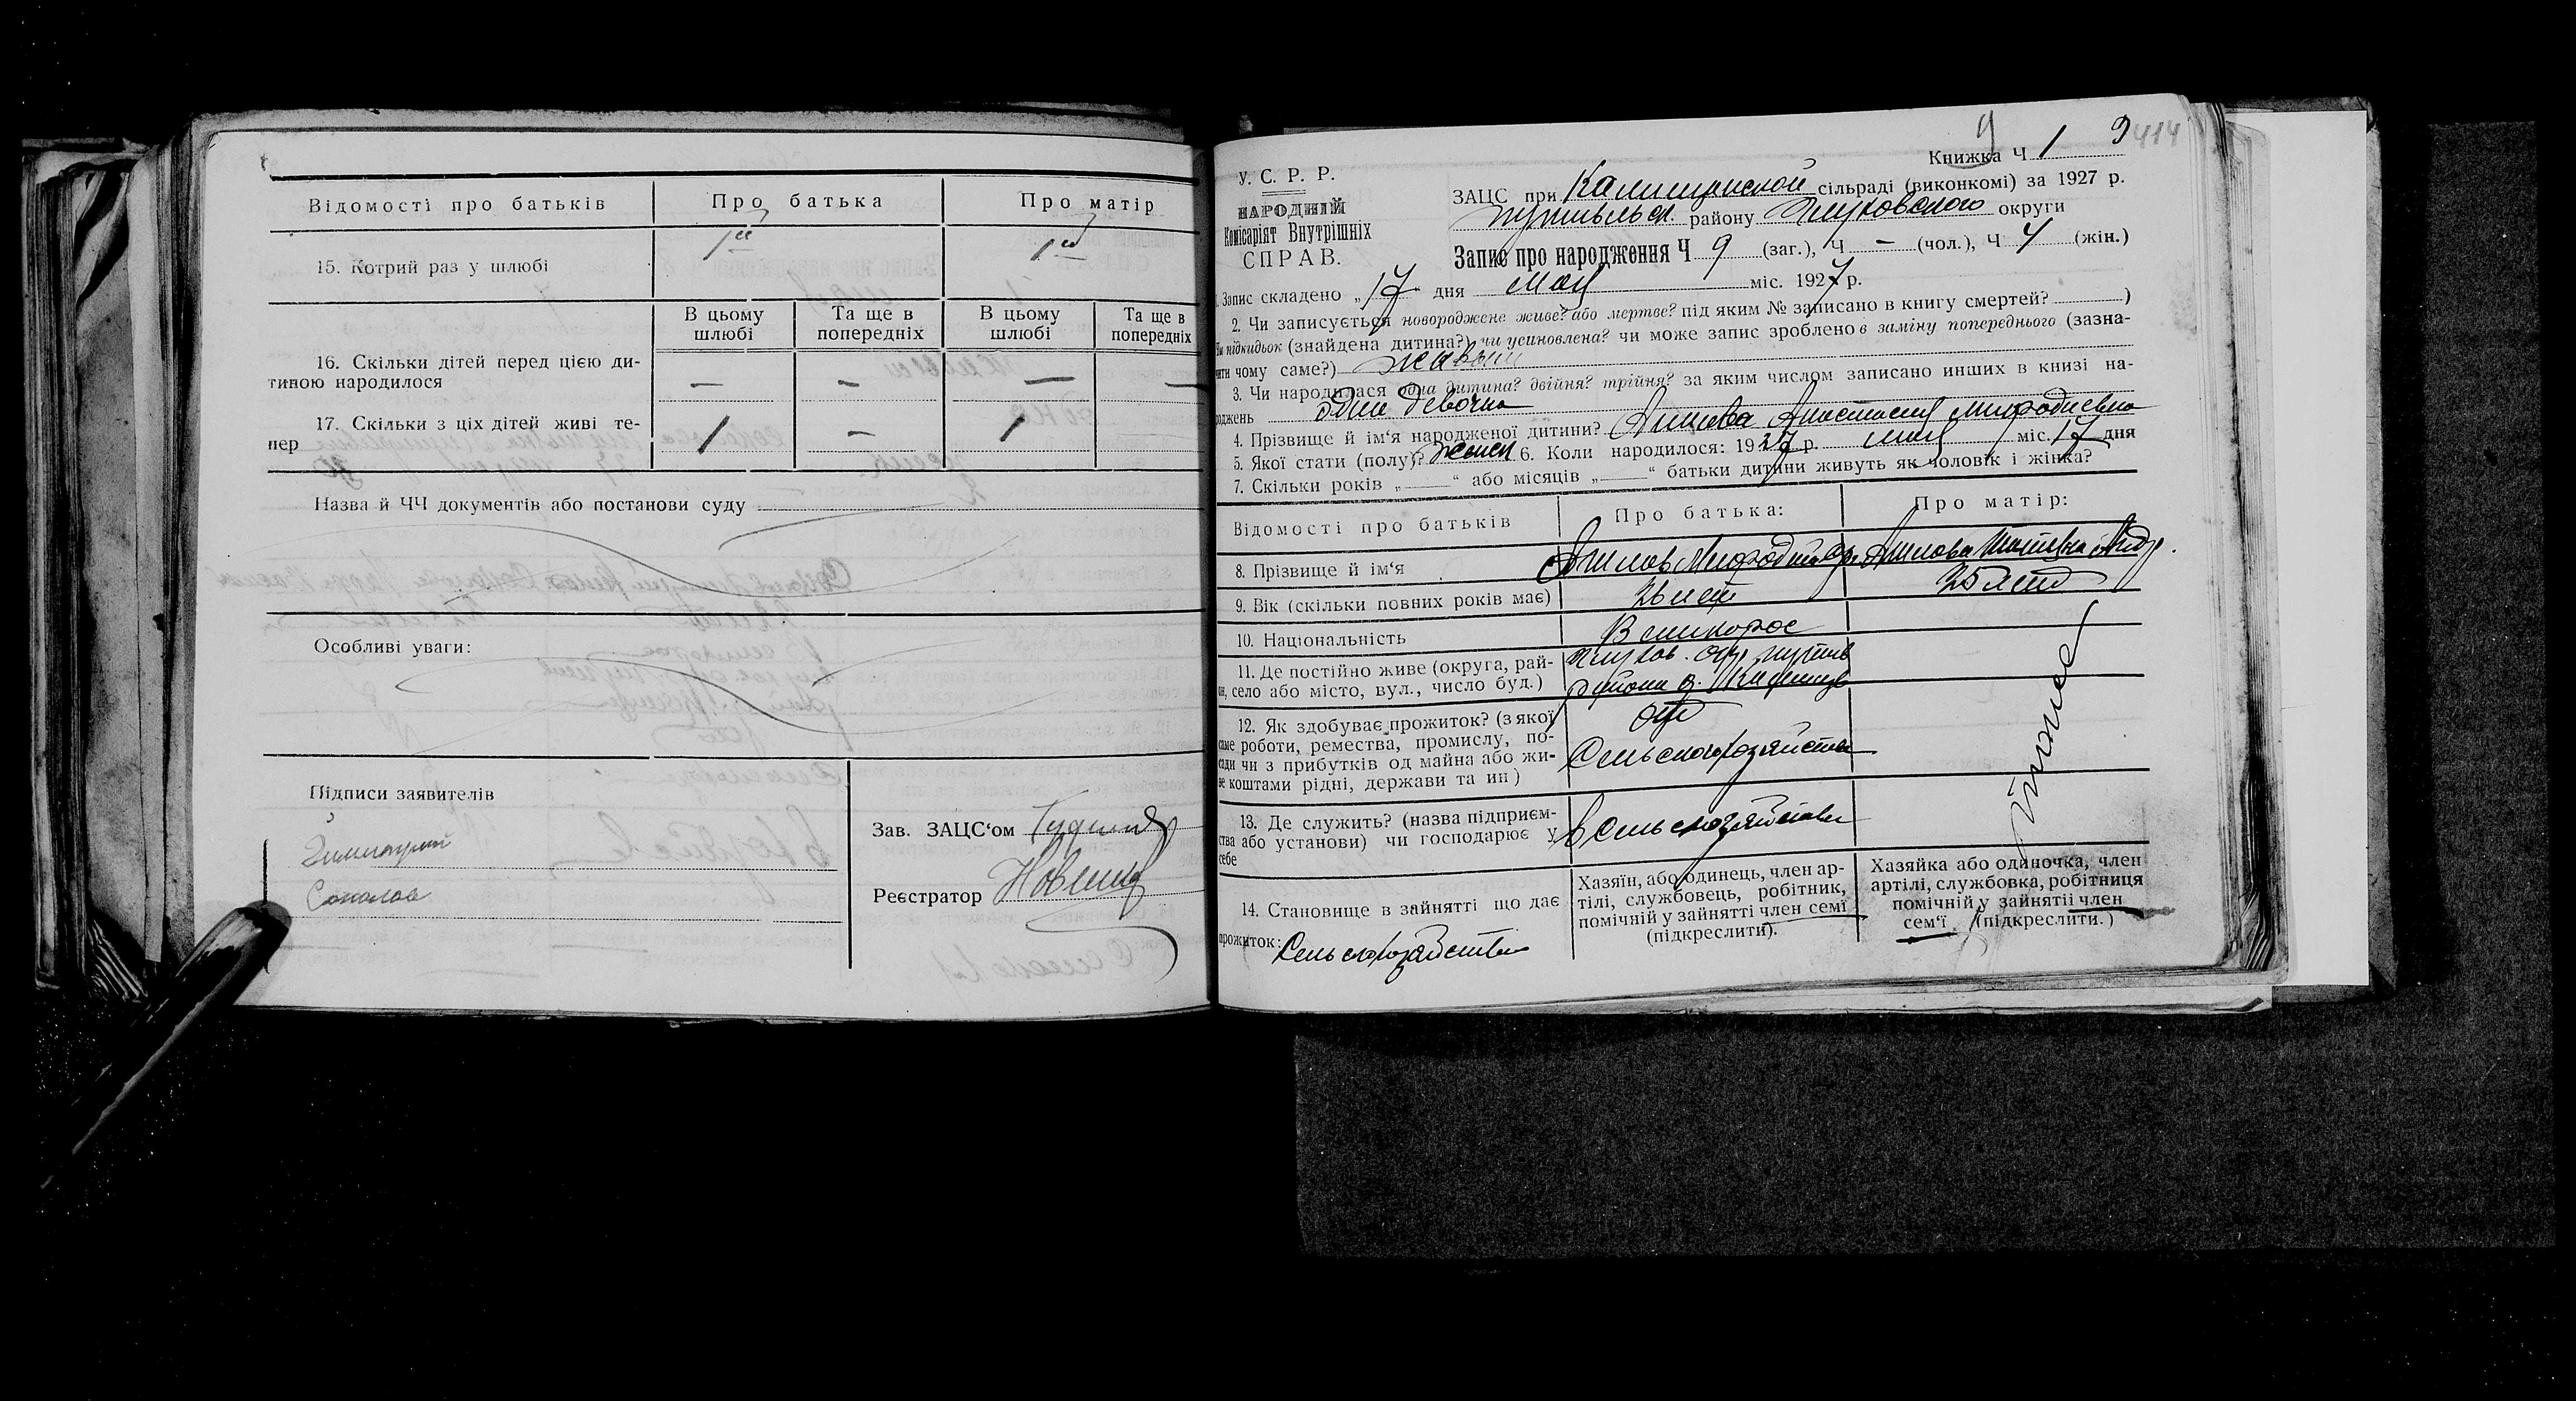 Відомості про батьків
Про батька
Про матір
15. Котрий раз у шлюбі
1ый
1ый
В цьому шлюбі
Та ще в попередніх
В цьому шлюбі
Та ще в попередніх
16. Скільки дітей перед цією ди-
тиною народилося
— — — —
17. Скільки з ціх дітей живі те-
пер
1 — 1
Назва й ЧЧ документів або постанови суду
Особливі уваги:
Підписи заявителів
Соколов
Зав. ЗАЦС‘ом
Реєстратор
9
9 414
Книжка Ч 1
У. С. Р. Р.
НАРОДНІЙ
Комісаріят Внутрішніх
СПРАВ.
ЗАЦС при сільраді (виконкомі) за 1927 р.
Путивльск. району Глуховского округи
Запис про народження Ч 9 (заг.), Ч — (чол.), Ч 4 (жін.)
1. Запис складено „17 дня мая міс. 1927 р.
2. Чи записується новороджене живе? або мертве? під яким № записано в книгу смертей? )
чи підкидьок (знайдена дитина?) чи усиновлена? чи може запис зроблено в заміну попереднього (зазна-
чити чому саме?) живым
3. Чи народилася одна дитина? двійня? трійня? за яким числом записано инших в книзі на-
роджень одна девочка
4. Прізвище й ім‘я народженої дитини? Анастасия
5. Якої стати (полу)? женск 6. Коли народилося: 1927 р. мая міс. 17 дня
7. Скільки років „ — “ або місяців „ — “ батьки дитини живуть як чоловік і жінка?
Відомості про батьків
Про батька:
Про матір:
8. Прізвище й ім‘я
9. Вік (скільки повних років має)
26 лет
25 лет
10. Національність
Великорос
11. Де постійно живе (округа, рай-
он, село або місто, вул., число буд.)
Глухов. окр. путив
района
12. Як здобуває прожиток? (з якої
саме роботи, ремества, промислу, по-
сади чи з прибутків од майна або жи-
ве коштами рідні, держави та ин )
от
Сельскохозяйства
13. Де служить? (назва підприєм-
ства або установи) чи господарює у
себе
в сельскохозяйстве
тоже
14. Становище в зайнятті що дає
прожиток: Сельскохозяйство
Хазяїн, або одинець, член ар-
тілі, службовець, робітник,
помічній у зайнятті член семї
(підкреслити).
Хазяйка або одиночка, член
артілі, службовка, робітниця
помічній у зайнятіі член
сем‘ї (підкреслити.)